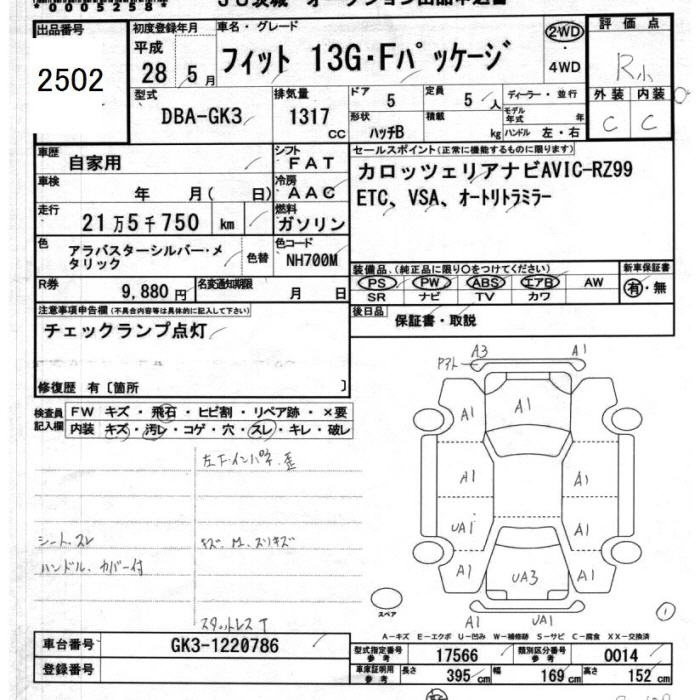 *0005258*
JU茨城 オークション出品申込書
出品番号 初度登録年月 車名・グレード 評価点
2502
平成 28年 5月
フィット 13G・Fパッケージ
2WD・4WD
R小
外装 内装
C C
型式 排気量 ドア 定員 ディーラー・並行
DBA-GK3 1317 CC 5 5人
モデル年式 年
形状 積載
ハッチB kg ハンドル 左・右
車歴 シフト セールスポイント(正常に機能するものに限ります)
自家用 FAT カロッツェリアナビAVIC-RZ99
車検 冷房 ETC、VSA、オートリトラミラー
年 月( 日) AAC
走行 燃料
21万5千750 km ガソリン
色 色替 色コード
アラバスターシルバー・メタリック NH700M
装備品、(純正品に限り○をつけてください) 新車保証書
PS PW ABS エアB AW 有・無
SR ナビ TV カワ
R券 9,880円 名変通知期限 月 日
後日品 保証書・取説
注意事項申告欄(不具合内容等は具体的に記入して下さい)
チェックランプ点灯
修復歴 有〔箇所 〕
検査員記入欄
FW キズ・飛石・ヒビ割・リペア跡・×要
内装 キズ・汚レ・コゲ・穴・スレ・キレ・破レ
左F.インパネ.歪
シート.スレ
ハンドル、カバー付
スタットレスT
A3 A1
A1 A1
A1 A1
UA1 A1
A1 UA3 A1
A1 UA1
スペア
①
A-キズ E-エクボ U-凹み W-補修跡 S-サビ C-腐食 XX-交換済
車台番号 GK3-1220786
登録番号
型式指定番号参考 17566 類別区分番号参考 0014
車庫証明用参考 長さ 395cm 幅 169cm 高さ 152cm